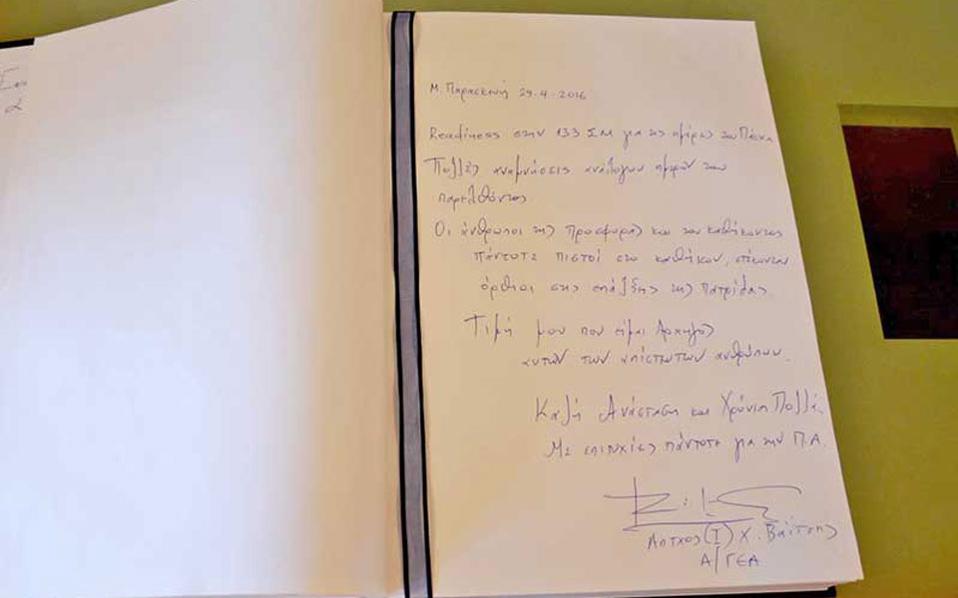 Μ. Παρασκευή 29-4-2016
Readiness στην 133 ΣΜ για τις ημέρες του Πάσχα
Πολλές αναμνήσεις ανάλογων ημερών του
παρελθόντος
Οι άνθρωποι της προσφοράς και του καθήκοντος
πάντοτε πιστοί στο καθήκον, στέκονται
όρθιοι στις επάλξεις της πατρίδας.
Τιμή μου που είμαι Αρχηγός
αυτών των απίστευτων ανθρώπων.
Καλή Ανάσταση και Χρόνια Πολλά.
Με επιτυχίες πάντοτε για την Π.Α.
Απτχος (Ι) Χ. Βαΐτσης
Α/ΓΕΑ